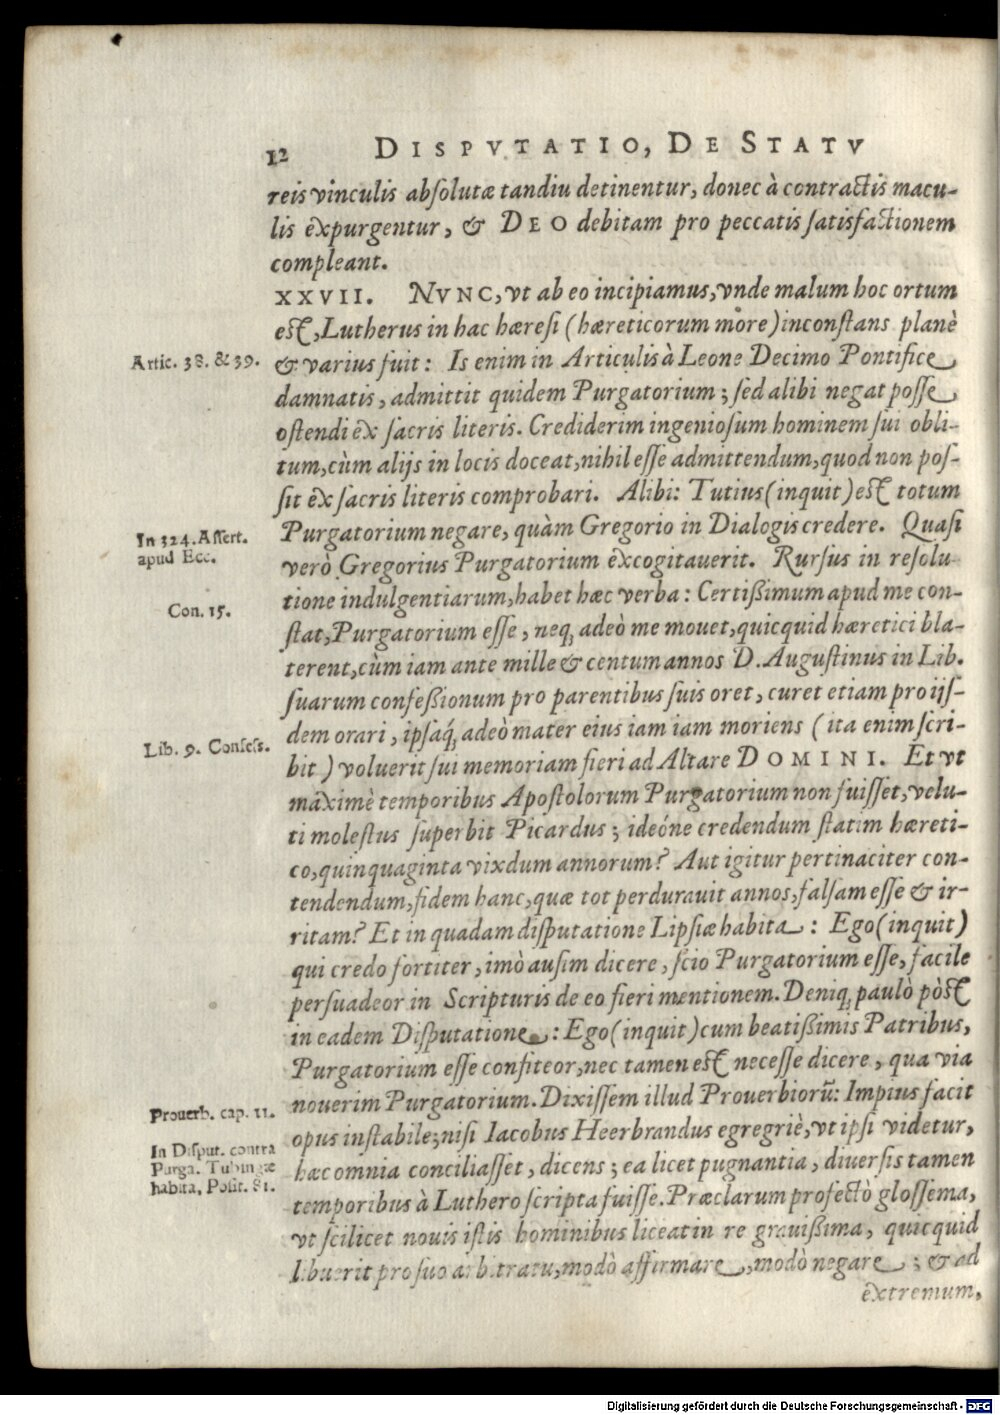 12 DISPVTATIO, DE STATV
reis vinculis absolutæ tandiu detinentur, donec à contractis macu-
lis expurgentur, & DEO debitam pro peccatis satisfactionem
compleant.
XXVII. NVNC, vt ab eo incipiamus, vnde malum hoc ortum
est, Lutherus in hac hæresi (hæreticorum more) inconstans planè
Artic. 38. & 39.
& varius fuit: Is enim in Articulis à Leone Decimo Pontifice
damnatis, admittit quidem Purgatorium; sed alibi negat posse
ostendi ex sacris literis. Crediderim ingeniosum hominem sui obli-
tum, cùm alijs in locis doceat, nihil esse admittendum, quod non pos-
sit ex sacris literis comprobari. Alibi: Tutius (inquit) est totum
In 324. Assert.
apud Ecc.
Purgatorium negare, quàm Gregorio in Dialogis credere. Quasi
verò Gregorius Purgatorium excogitauerit. Rursus in resolu-
Con. 15.
tione indulgentiarum, habet hæc verba: Certißimum apud me con-
stat, Purgatorium esse, neq; adeò me mouet, quicquid hæretici bla-
terent, cùm iam ante mille & centum annos D. Augustinus in Lib.
suarum confeßionum pro parentibus suis oret, curet etiam pro ijs-
Lib. 9. Confess.
dem orari, ipsáq; adeò mater eius iam iam moriens (ita enim scri-
bit) voluerit sui memoriam fieri ad Altare DOMINI. Et vt
maximè temporibus Apostolorum Purgatorium non fuisset, velu-
ti molestus superbit Picardus; ideóne credendum statim hæreti-
co, quinquaginta vixdum annorum? Aut igitur pertinaciter con-
tendendum, fidem hanc, quæ tot perdurauit annos, falsam esse & ir-
ritam? Et in quadam disputatione Lipsiæ habita: Ego (inquit)
qui credo fortiter, imò ausim dicere, scio Purgatorium esse, facile
persuadeor in Scripturis de eo fieri mentionem. Deniq; paulò pòst
in eadem Disputatione: Ego (inquit) cum beatißimis Patribus,
Purgatorium esse confiteor, nec tamen est necesse dicere, qua via
Prouerb. cap. 11.
nouerim Purgatorium. Dixissem illud Prouerbiorū: Impius facit
In Disput. contra
Purga. Tubingæ
habita, Posit. 81.
opus instabile; nisi Iacobus Heerbrandus egregriè, vt ipsi videtur,
hæc omnia conciliasset, dicens; ea licet pugnantia, diuersis tamen
temporibus à Luthero scripta fuisse. Præclarum profectò glossema,
vt scilicet nouis istis hominibus liceat in re grauißima, quicquid
libuerit pro suo arbitratu, modò affirmare, modò negare; & ad
extremum,
Digitalisierung gefördert durch die Deutsche Forschungsgemeinschaft - DFG